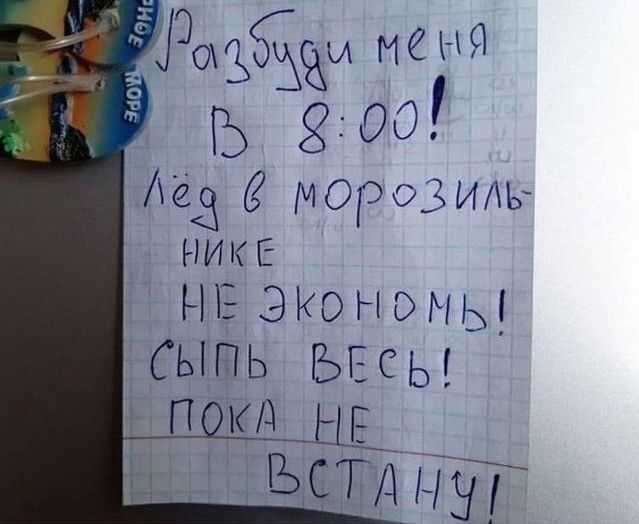 РНОЕ
МОРЕ
Разбуди меня
В 8:00!
Лёд в морозиль-
нике
НЕ ЭКОНОМЬ!
СЫПЬ ВЕСЬ!
ПОКА НЕ
ВСТАНУ!